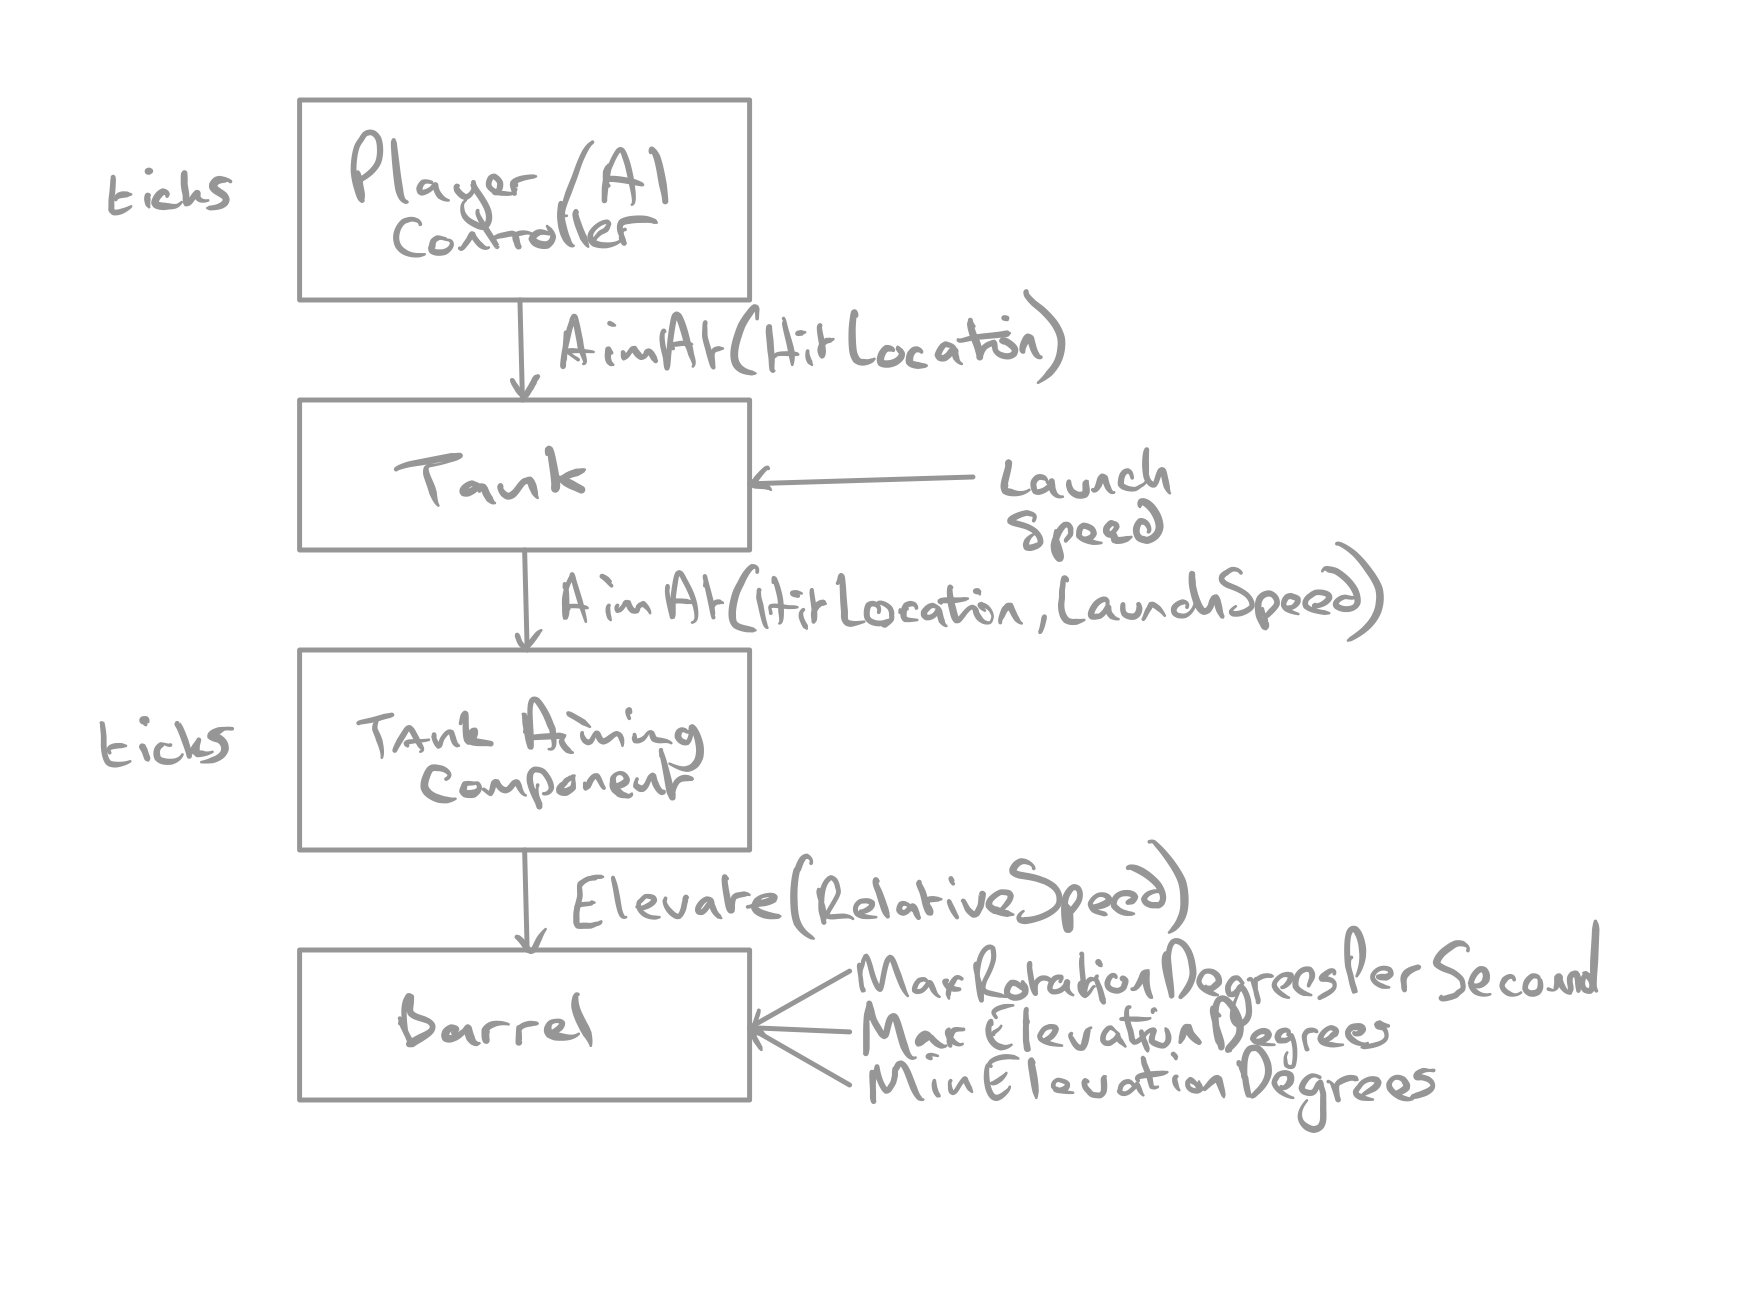 ticks
Player/AI
Controller
AimAt(HitLocation)
Tank
Launch
Speed
AimAt(HitLocation, LaunchSpeed)
ticks
Tank Aiming
Component
Elevate(RelativeSpeed)
Barrel
MaxRotationDegreesPerSecond
MaxElevationDegrees
MinElevationDegrees